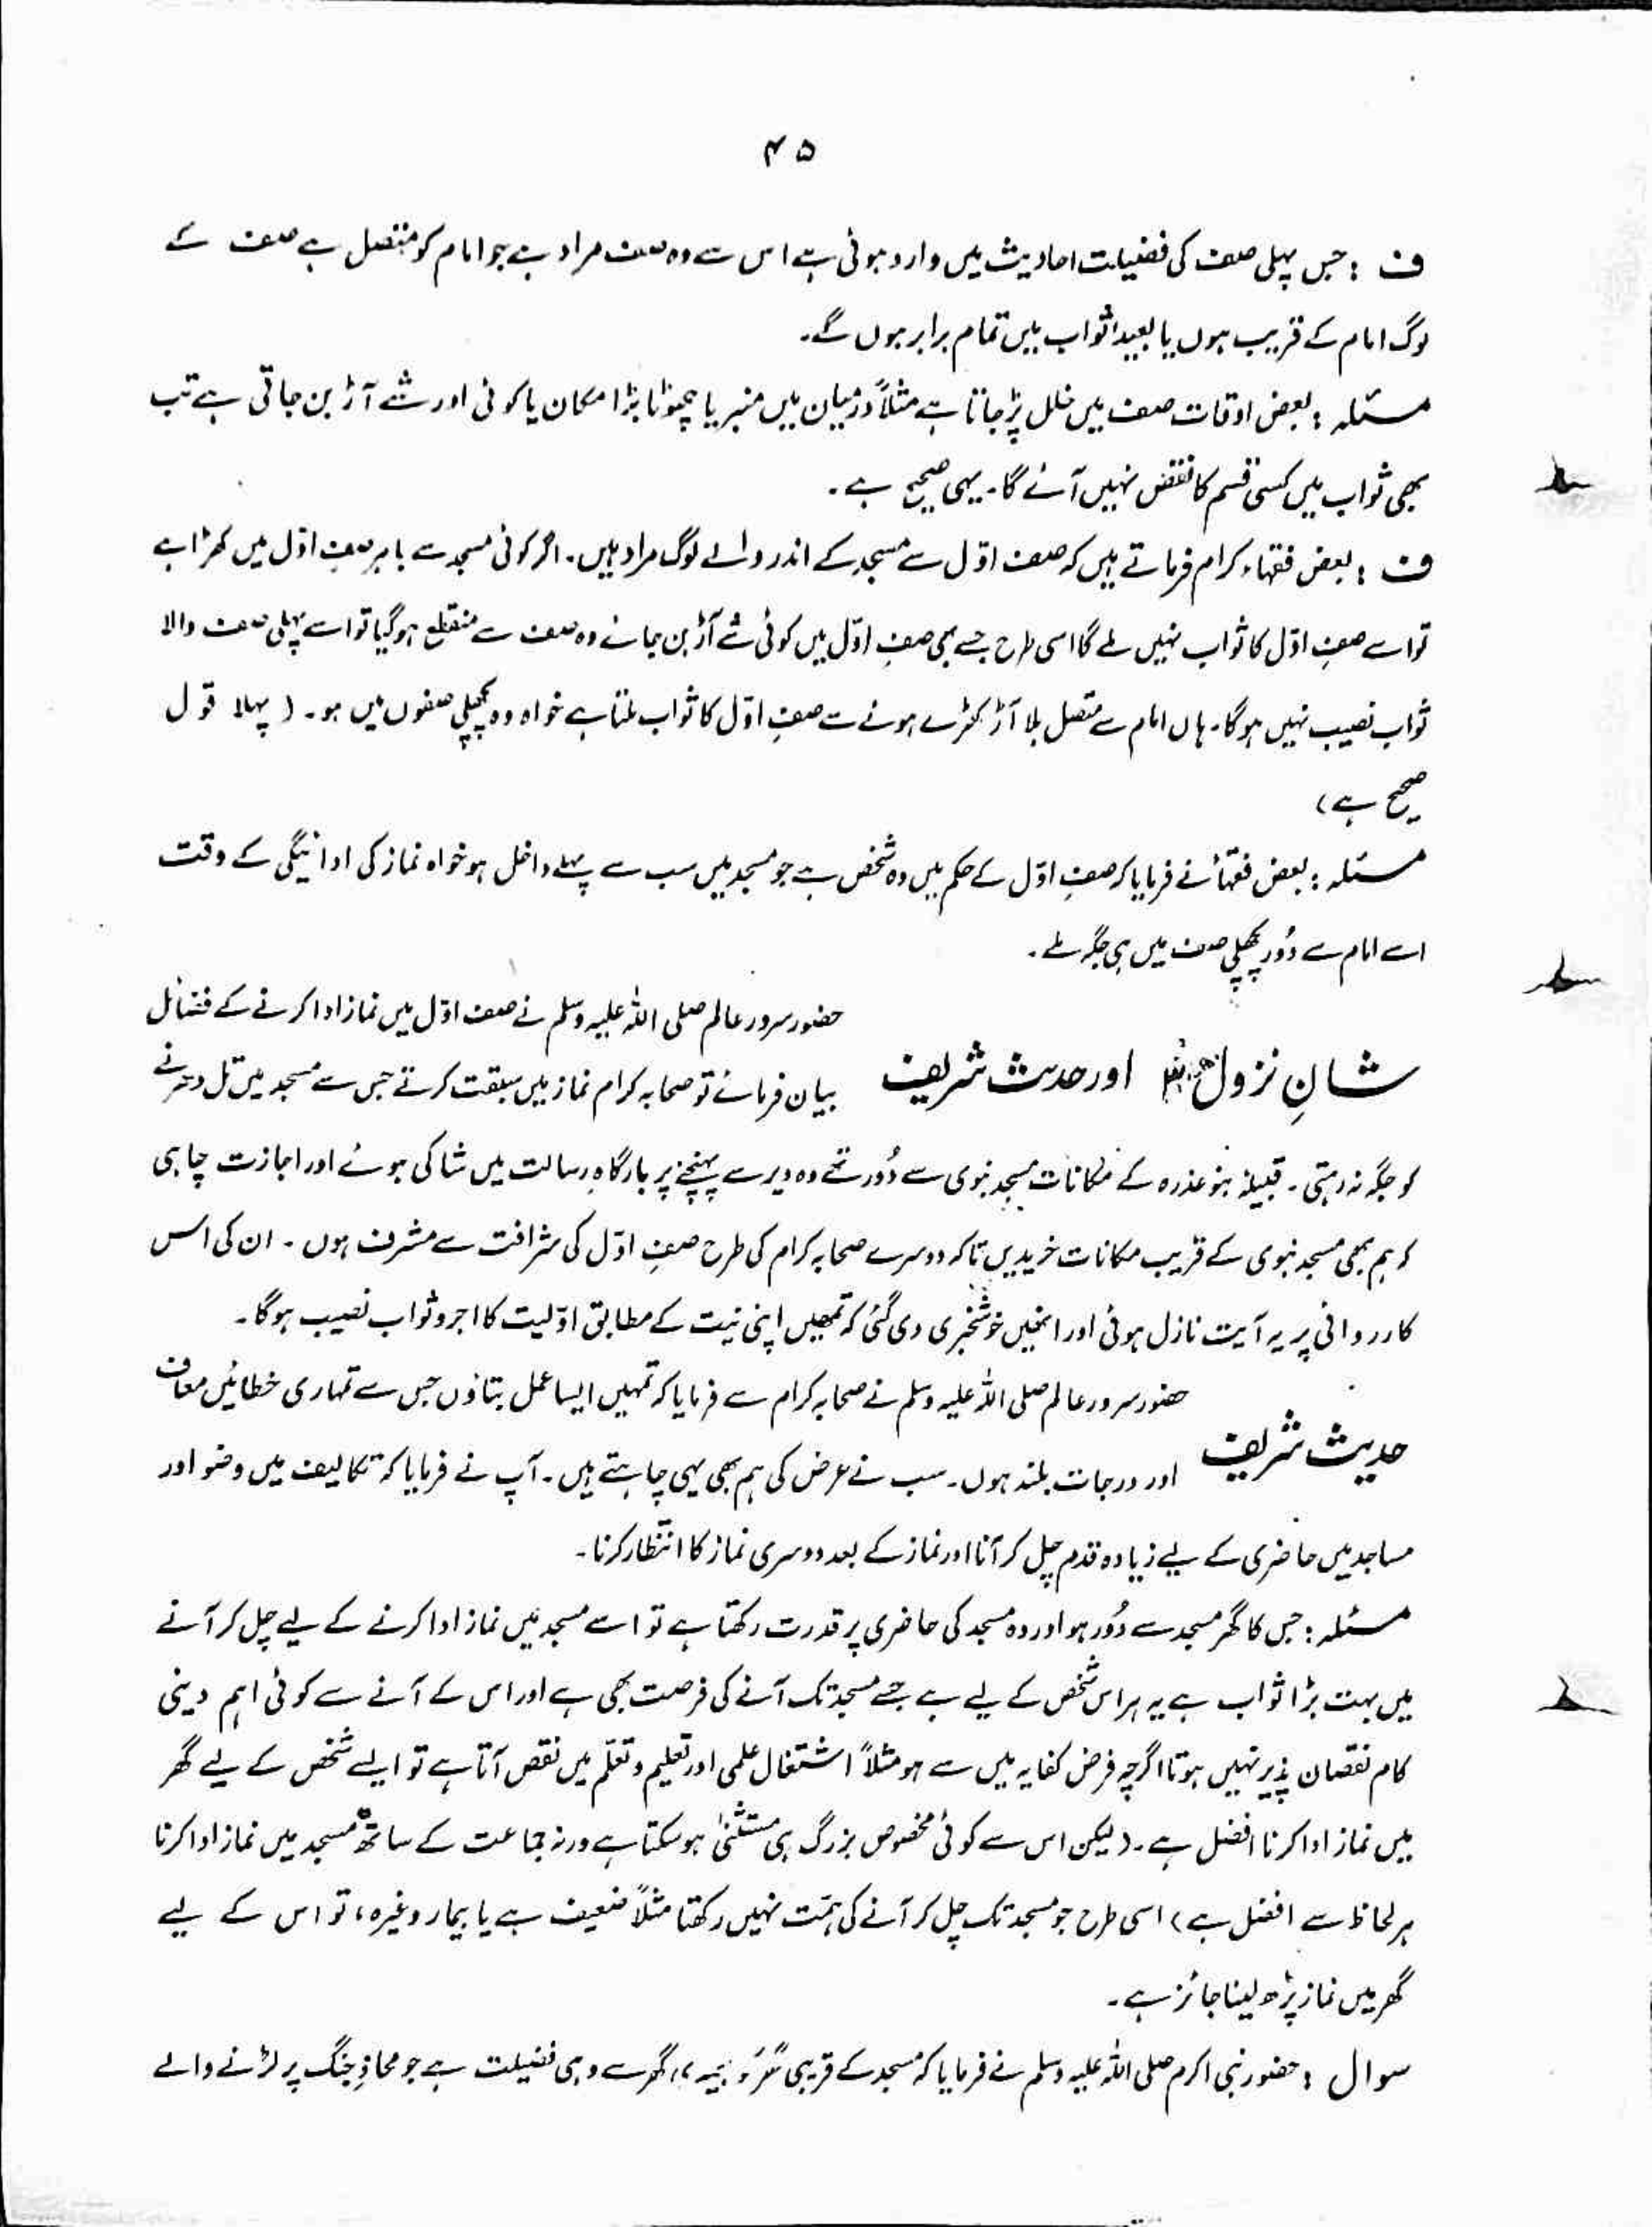 ۴۵
ف : جس پہلی صف کی فضیلت احادیث میں وارد ہوئی ہے اس سے وہ صف مراد ہے جو امام کو متصل ہے صف کے
لوگ امام کے قریب ہوں یا بعید ثواب میں تمام برابر ہوں گے۔
مسئلہ : بعض اوقات صف میں خلل پڑ جاتا ہے مثلاً درمیان میں منبر یا چھوٹا بڑا مکان یا کوئی اور شے آڑ بن جاتی ہے تب
بھی ثواب میں کسی قسم کا نقص نہیں آئے گا۔ یہی صحیح ہے۔
ف : بعض فقہاء کرام فرماتے ہیں کہ صف اوّل سے مسجد کے اندر والے لوگ مراد ہیں۔ اگر کوئی مسجد سے باہر صفِ اوّل میں کھڑا ہے
تو اسے صفِ اوّل کا ثواب نہیں ملے گا اسی طرح جسے بھی صفِ اوّل میں کوئی شے آڑ بن جائے وہ صف سے منقطع ہو گیا تو اسے پہلی صف والا
ثواب نصیب نہیں ہوگا۔ ہاں امام سے متصل بلا آڑ کھڑے ہونے سے صفِ اوّل کا ثواب ملتا ہے خواہ وہ پچھلی صفوں میں ہو۔ (پہلا قول
صحیح ہے)
مسئلہ : بعض فقہاء نے فرمایا کہ صفِ اوّل کے حکم میں وہ شخص ہے جو مسجد میں سب سے پہلے داخل ہو خواہ نماز کی ادائیگی کے وقت
اسے امام سے دُور پچھلی صف میں ہی جگہ ملے۔
شانِ نزول اور حدیث شریف
حضور سرور عالم صلی اللہ علیہ وسلم نے صف اوّل میں نماز ادا کرنے کے فضائل
بیان فرمائے تو صحابہ کرام نماز میں سبقت کرتے جس سے مسجد میں تل دھرنے
کو جگہ نہ رہتی۔ قبیلہ بنو عذرہ کے مکانات مسجد نبوی سے دُور تھے وہ دیر سے پہنچنے پر بارگاہِ رسالت میں شاکی ہوئے اور اجازت چاہی
کہ ہم بھی مسجد نبوی کے قریب مکانات خریدیں تاکہ دوسرے صحابہ کرام کی طرح صفِ اوّل کی شرافت سے مشرف ہوں۔ ان کی اس
کارروائی پر یہ آیت نازل ہوئی اور انھیں خوشخبری دی گئی کہ تمھیں اپنی نیت کے مطابق اوّلیت کا اجر و ثواب نصیب ہوگا۔
حدیث شریف
حضور سرور عالم صلی اللہ علیہ وسلم نے صحابہ کرام سے فرمایا کہ تمہیں ایسا عمل بتاؤں جس سے تمہاری خطائیں معاف
اور درجات بلند ہوں۔ سب نے عرض کی ہم بھی یہی چاہتے ہیں۔ آپ نے فرمایا کہ تکالیف میں وضو اور
مساجد میں حاضری کے لیے زیادہ قدم چل کر آنا اور نماز کے بعد دوسری نماز کا انتظار کرنا۔
مسئلہ : جس کا گھر مسجد سے دُور ہو اور وہ مسجد کی حاضری پر قدرت رکھتا ہے تو اسے مسجد میں نماز ادا کرنے کے لیے چل کر آنے
میں بہت بڑا ثواب ہے یہ ہر اس شخص کے لیے ہے جسے مسجد تک آنے کی فرصت بھی ہے اور اس کے آنے سے کوئی اہم دینی
کام نقصان پذیر نہیں ہوتا اگرچہ فرض کفایہ میں سے ہو مثلاً اشتغال علمی اور تعلیم و تعلّم میں نقص آتا ہے تو ایسے شخص کے لیے گھر
میں نماز ادا کرنا افضل ہے۔ (لیکن اس سے کوئی مخصوص بزرگ ہی مستثنیٰ ہوسکتا ہے ورنہ جماعت کے ساتھ مسجد میں نماز ادا کرنا
ہر لحاظ سے افضل ہے) اسی طرح جو مسجد تک چل کر آنے کی ہمّت نہیں رکھتا مثلاً ضعیف ہے یا بیمار وغیرہ، تو اس کے لیے
گھر میں نماز پڑھ لینا جائز ہے۔
سوال : حضور نبی اکرم صلی اللہ علیہ وسلم نے فرمایا کہ مسجد کے قریبی گھر کو بعید گھر سے وہی فضیلت ہے جو محاذِ جنگ پر لڑنے والے